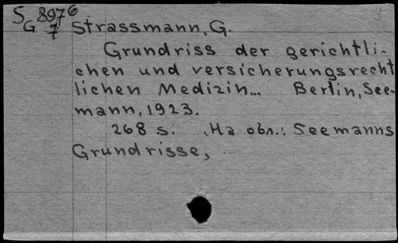 S 8976
G 7 Strassmann, G.
Grundriss der gerichtli-
chen und versicherungsrecht
lichen Medizin... Berlin, See-
mann, 1923.
268 s. На обл.: Seemanns
Grundrisse,